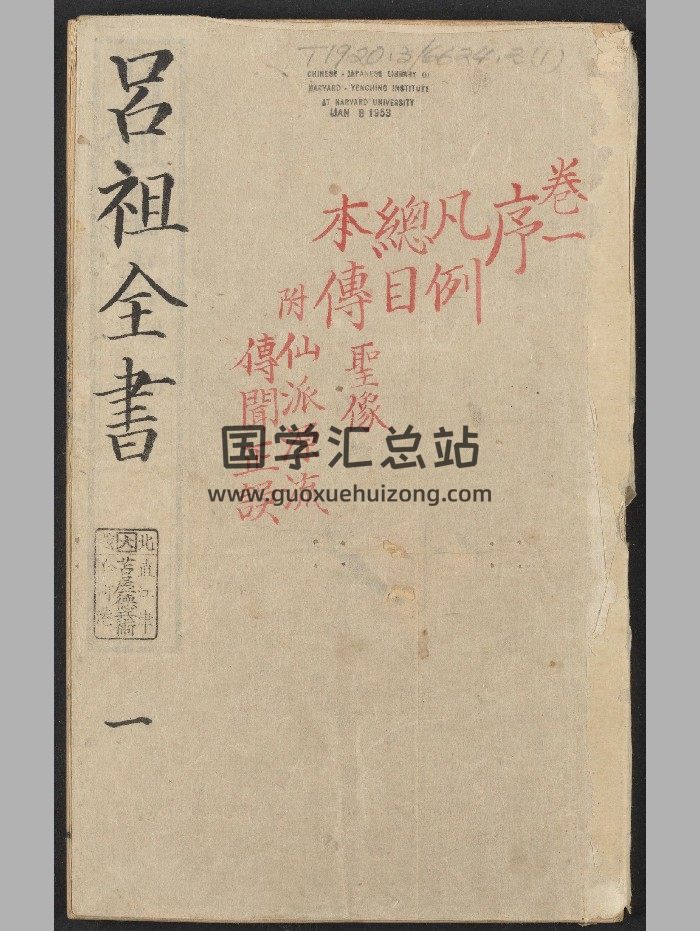 T1920.3/6624.2(1)
CHINESE - JAPANESE LIBRARY OF
HARVARD - YENCHING INSTITUTE
AT HARVARD UNIVERSITY
JAN 8 1953
卷一
序
凡例
總目
聖像
本傳
附仙派源流
傳聞正誤
呂祖全書
大
苫屋德兵衛
一
国学汇总站
www.guoxuehuizong.com